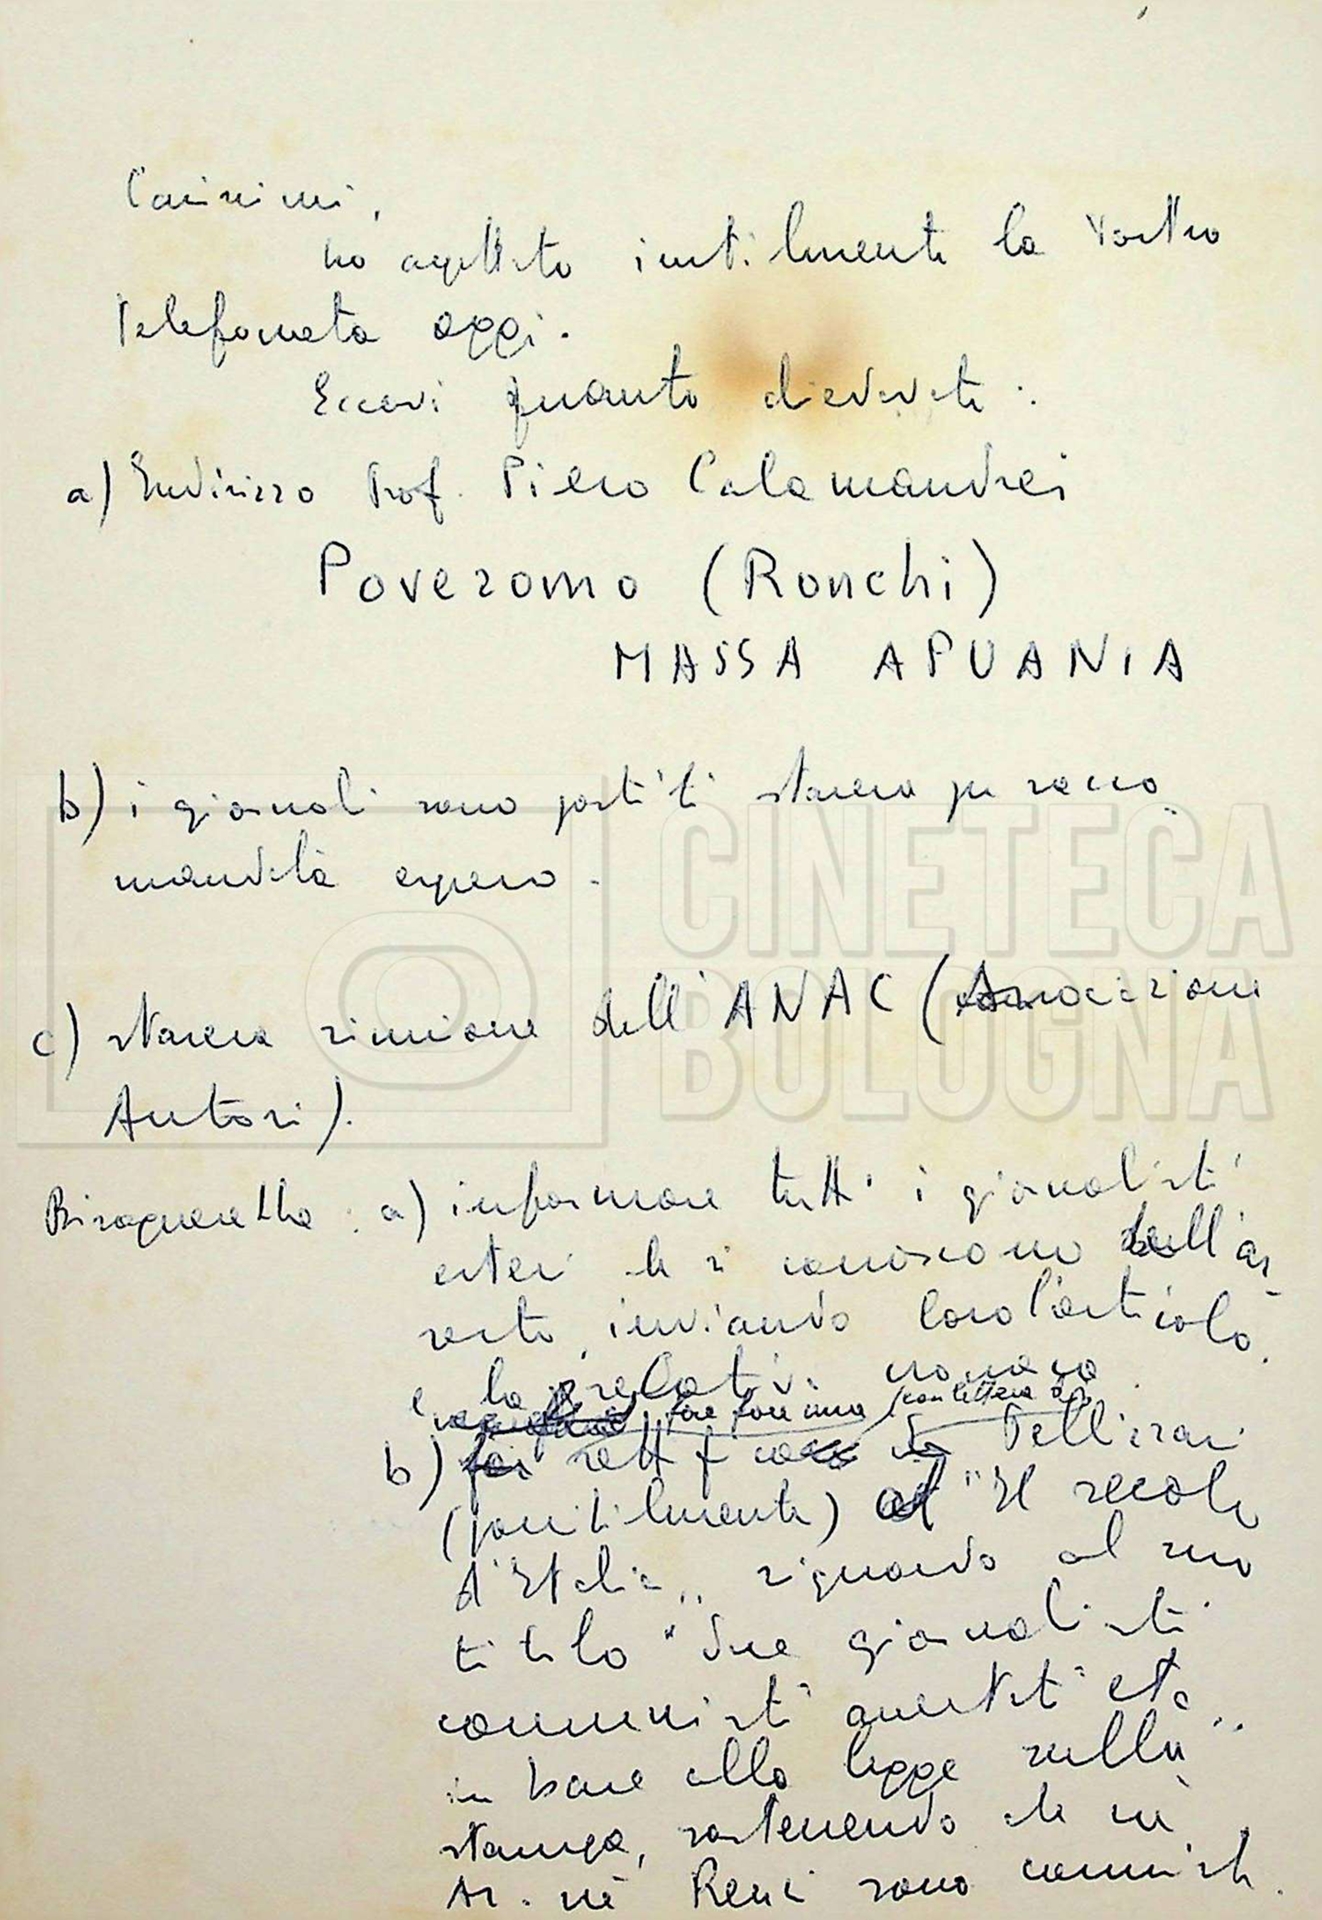 Carissimi,
ho aspettato inutilmente la Vostra
telefonata oggi.
Eccovi quanto chiedevate:
a) Indirizzo Prof. Piero Calamandrei
Poveromo (Ronchi)
MASSA APUANIA
b) i giornali sono partiti stasera per racco-
mandata espresso.
c) stasera riunione dell'ANAC (Associazione
Autori).
Bisognerebbe: a) informare tutti i giornalisti
esteri che si conoscono dell'ar-
resto, inviando loro l'articolo
e la relativa cronaca.
fare fare una (con lettera di
b) rettifica Pellizzari
(possibilmente) al "Il secolo
d'Italia" riguardo al suo
titolo "due giornalisti
comunisti arrestati etc."
in base alla legge sulla
stampa, sostenendo che nè
Ar. nè Renzi sono comunisti.
CINETECA
BOLOGNA